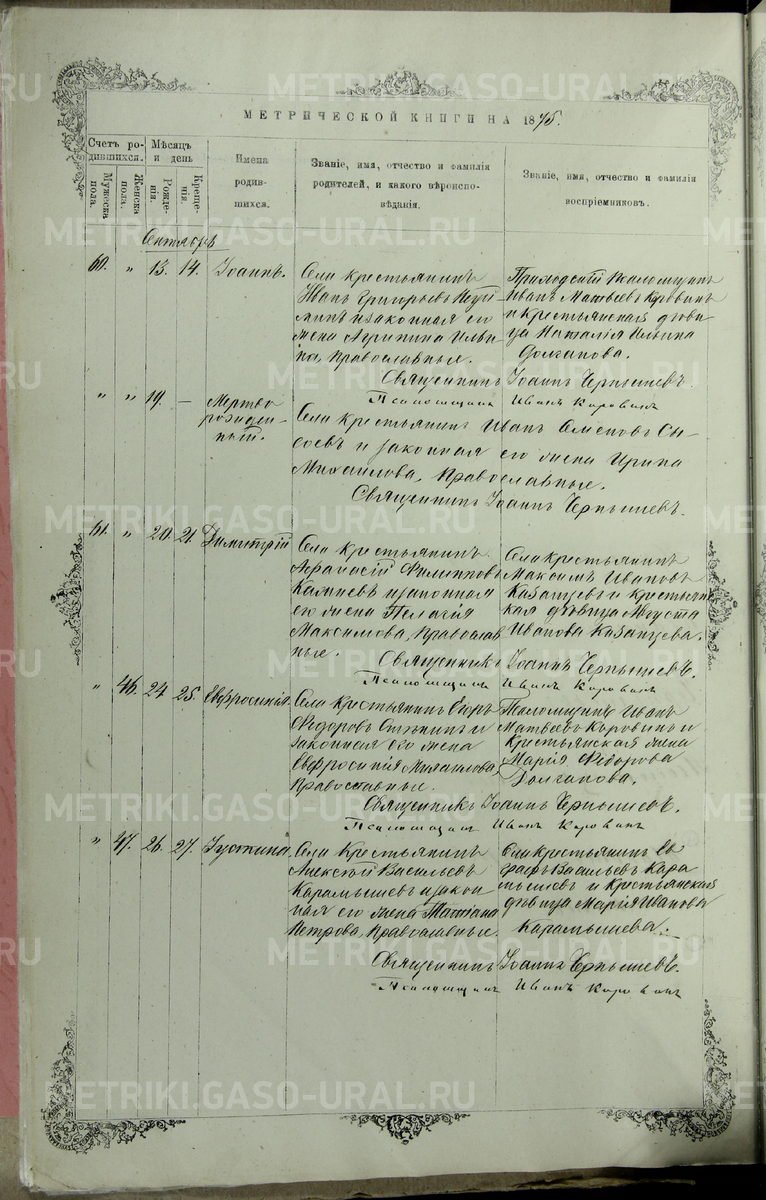 METRIKI.GASO-URAL.RU
МЕТРИЧЕСКОЙ КНИГИ НА 1875.
Счетъ родившихся.
Мужеска пола.
Женска пола.
Мѣсяцъ и день
Рожденія.
Крещенія.
Имена родившихся.
Званіе, имя, отчество и фамилія родителей, и какого вѣроисповѣданія.
Званіе, имя, отчество и фамилія воспріемниковъ.
Сентябрь
60. " 13. 14. Іоаннъ.
Села крестьянинъ
Иванъ Григорьевъ
и законная его
жена Агрипина Ильина, православные.
Иванъ Матвеевъ Коровинъ
и крестьянская девица Наталія Ильина
Долганова.
Священникъ Іоаннъ Чернышевъ.
Псаломщикъ Иванъ Коровинъ
" " 19. — Мертворожденный.
Села крестьянинъ Иванъ Семеновъ Сысоевъ и законная его жена Ирина
Михайлова, православные.
Священникъ Іоаннъ Чернышевъ.
61. " 20. 21. Димитрій
Села крестьянинъ
Афанасій Филипповъ
и законная
его жена Пелагія
Максимова, православные.
Села крестьянинъ
Максимъ Ивановъ
Казанцевъ и крестьянская девица Августа
Иванова Казанцева.
Священникъ Іоаннъ Чернышевъ.
Псаломщикъ Иванъ Коровинъ
" 46. 24. 25. Евфросинія.
Села крестьянинъ Егоръ
Федоровъ и
законная его жена
Евфросинія Михайлова,
православные.
Псаломщикъ Иванъ
Матвеевъ Коровинъ и
крестьянская жена
Марія Федорова
Долганова.
Священникъ Іоаннъ Чернышевъ.
Псаломщикъ Иванъ Коровинъ
" 47. 26. 27. Іустина.
Села крестьянинъ
Алексѣй Васильевъ
Карамышевъ и законная его жена Татіана
Петрова, православные.
Села крестьянинъ Евграфъ Васильевъ Карамышевъ и крестьянская
девица Марія Иванова
Карамышева.
Священникъ Іоаннъ Чернышевъ.
Псаломщикъ Иванъ Коровинъ